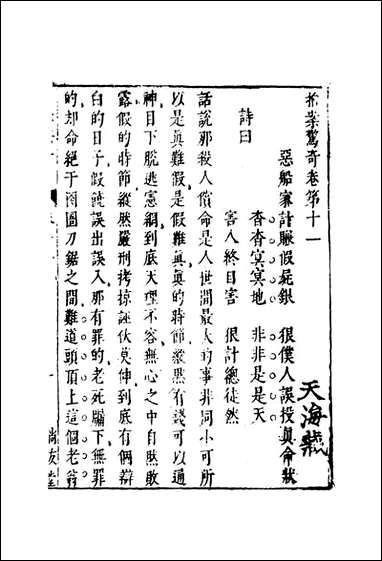 拍案驚奇卷第十一
惡船家計賺假屍銀 狠僕人誤投真命狀
詩曰
杳杳冥冥地 非非是是天
害人終自害 狠計總徒然
話說那殺人償命是人世間最大的事非同小可所
以是真難假是假難真真的時節縱然有錢可以通
神目下脫逃憲網到底天理不容無心之中自然敗
露假的時節縱然嚴刑拷掠誣伏莫伸到底有個辯
白的日子假饒誤出誤入那有罪的老死牖下無罪
的却命絕于囹圄刀鋸之間難道頭頂上這個老翁
一
尚友堂
天海藏